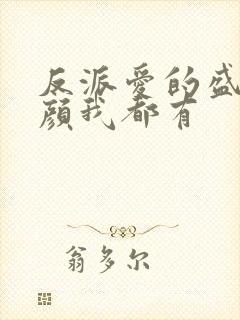 反派爱的盛
颜我都有
翁多尔